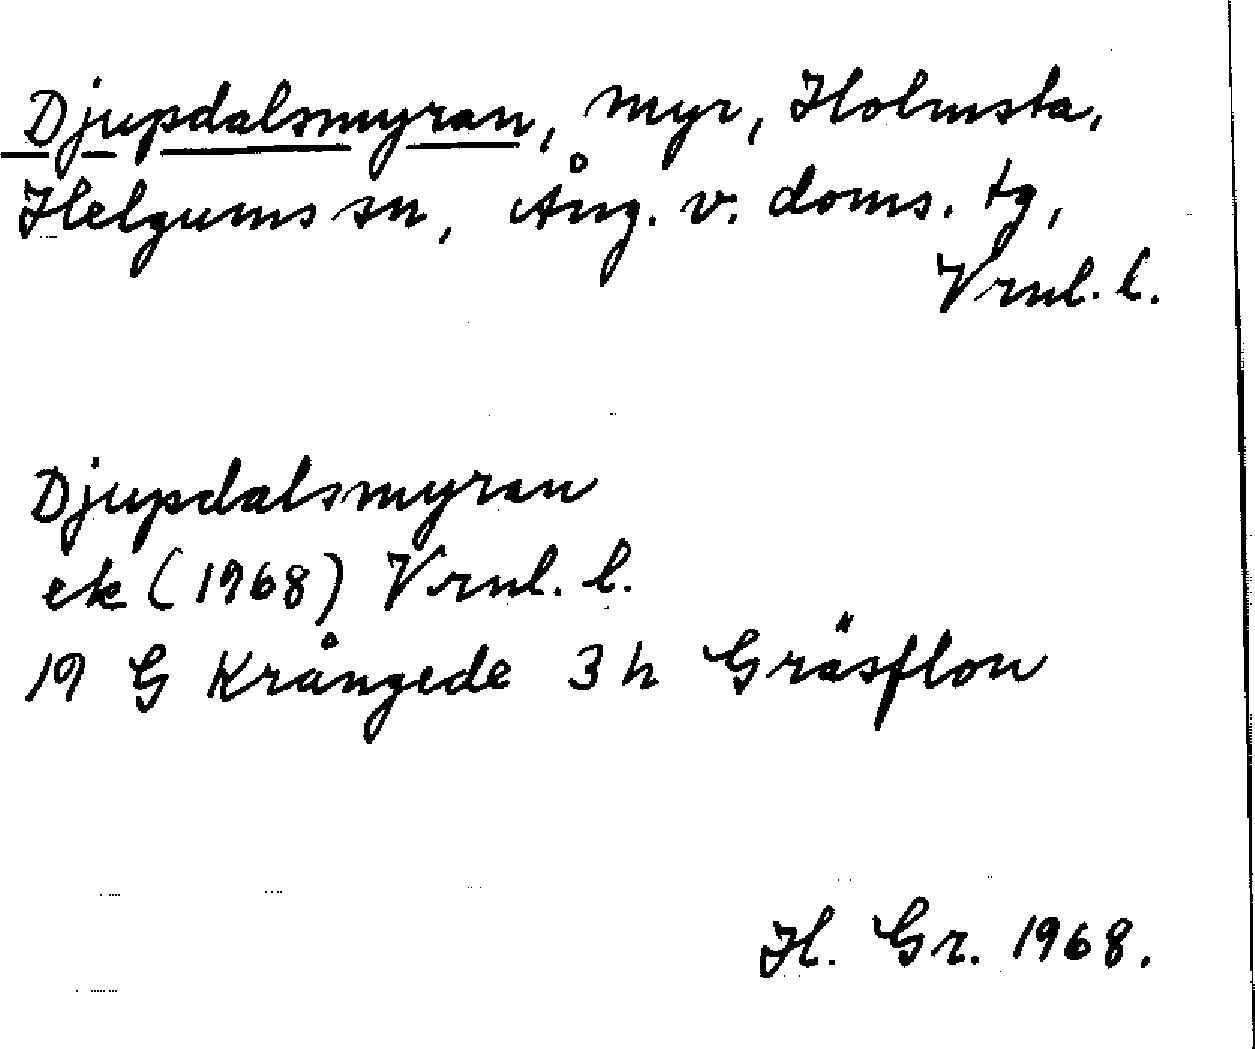 Djupdalsmyran, myr, Holmsta,
Helgums sn, Ång. v. doms. tg,
Vrnl. l.
Djupdalsmyran
ek (1968) Vrnl. l.
19 G Krångede 3 h Gräsflon
H. Gr. 1968.